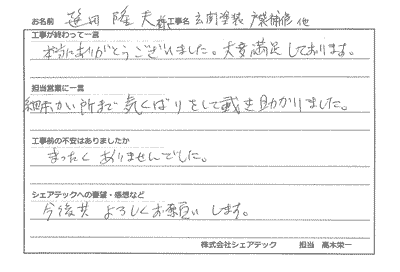 お名前 笹田 隆夫 様 工事名 玄関塗装 戸袋補修 他
工事が終わって一言
本当にありがとうございました。大変満足しております。
担当営業に一言
細かい所まで気くばりをして戴き助かりました。
工事前の不安はありましたか
まったくありませんでした。
シェアテックへの要望・感想など
今後共よろしくお願い します。
株式会社シェアテック 担当 高木栄一